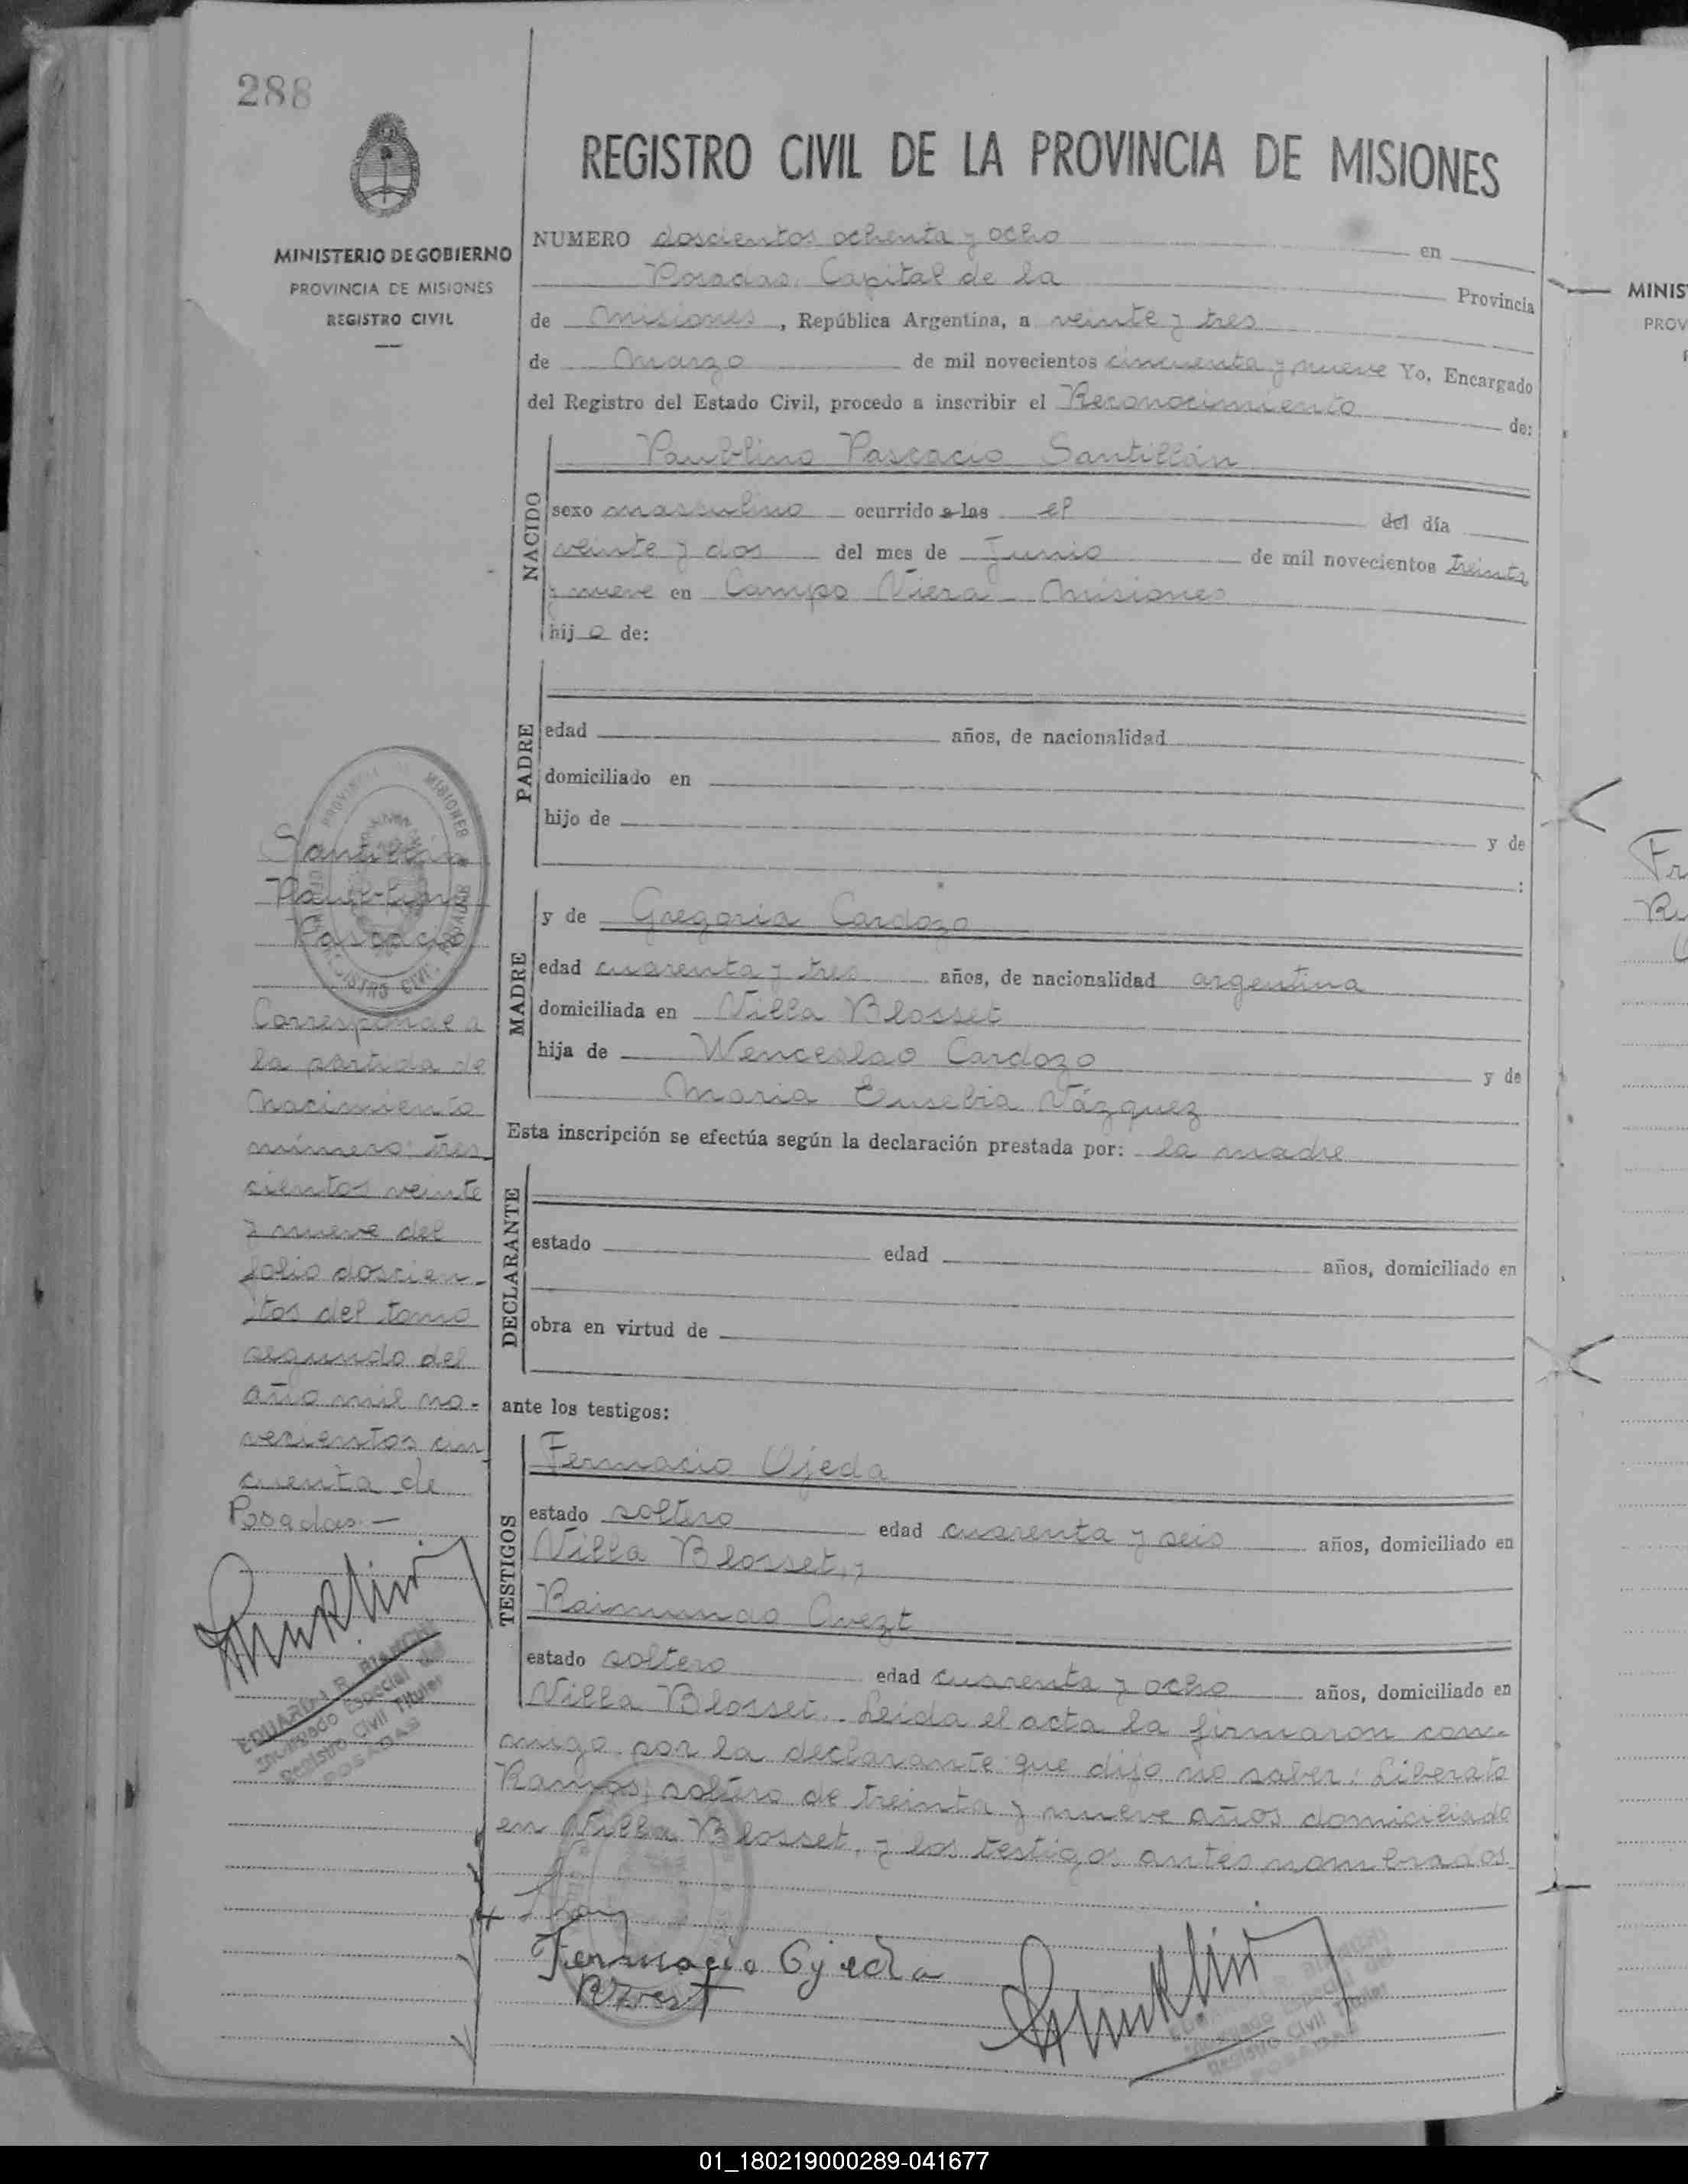 288
REGISTRO CIVIL DE LA PROVINCIA DE MISIONES
MINISTERIO DE GOBIERNO
PROVINCIA DE MISIONES
REGISTRO CIVIL
NUMERO doscientos ochenta y ocho en
Posadas, Capital de la Provincia
de Misiones, República Argentina, a veinte y tres
de Marzo de mil novecientos cincuenta y nueve Yo, Encargado
del Registro del Estado Civil, procedo a inscribir el Reconocimiento de:
NACIDO
Paublino Pascacio Santillán
sexo masculino ocurrido a las el del día
veinte y dos del mes de Junio de mil novecientos treinta
y nueve en Campo Viera - Misiones
hijo de:
PADRE
edad años, de nacionalidad
domiciliado en
hijo de y de
:
MADRE
y de Gregoria Cardozo
edad cuarenta y tres años, de nacionalidad argentina
domiciliada en Villa Blosset
hija de Wenceslao Cardozo y de
Maria Eusebia Vázquez
Esta inscripción se efectúa según la declaración prestada por: la madre
DECLARANTE
estado edad años, domiciliado en
obra en virtud de
ante los testigos:
TESTIGOS
Fermacio Ojeda
estado soltero edad cuarenta y seis años, domiciliado en
Villa Blosset, y
Raimundo
estado soltero edad cuarenta y ocho años, domiciliado en
Villa Blosset. Leida el acta la firmaron con-
migo por la declarante que dijo no saber: Liberato
Ramos, soltero de treinta y nueve años domiciliado
en Villa Blosset, y los testigos antes nombrados
Fermacio Ojeda
Santillán
Paublino
Pascacio
Corresponde a
la partida de
Nacimiento
número: tres
cientos veinte
y nueve del
folio doscien-
tos del tomo
segundo del
año mil no-
vecientos cin
cuenta de
Posadas.-
EDUARDO R. BIANCHI
Encargado Especial del
Registro Civil Titular
POSADAS
EDUARDO R. BIANCHI
Encargado Especial del
Registro Civil Titular
POSADAS
MINIS
PROV
Fr
01_180219000289-041677